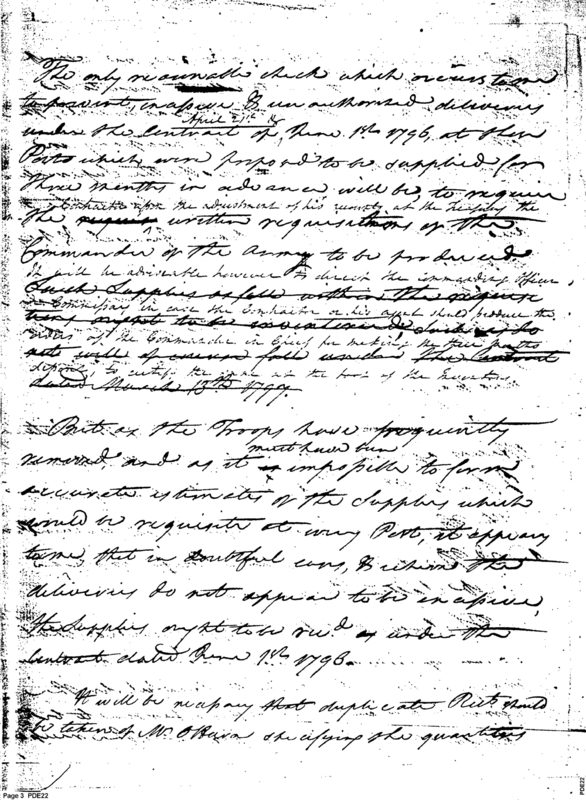 The only reasonable check which occurs to me
to prevent, excessive & unauthorised deliveries
April 21st &
under the Contract of June 1st 1796, at those
Posts which were proposed to be supplied for
three months in advance will be, to require
Contractor upon the adjustment of his accounts at the Treasury the
the written requisitions of the
Commander of the Army to be produced
it will be adviseable however to direct the commanding Officer
Such Supplies as fall within the
in case the Contractor or his agent shall produce the
ought to be
orders of the Commander in Chief for making
not will of course fall under the Contract
to certify the same at the of the
dated March 13th 1797.
But as the Troops have frequently
must have been
removed and as it is impossible to form
accurate estimates of the Supplies which
would be requisite at every Post, it appears
to me, that in doubtful cases, & where the
deliveries do not appear to be excessive,
the Supplies ought to be recd as under the
Contract dated June 1st 1796.
It will be necessary that duplicate Rects should
be taken of Mr. OHara specifying the quantities
Page 3 PDE22
PDE22